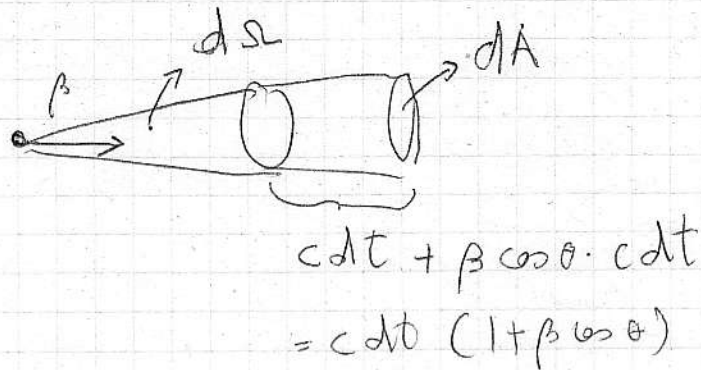 dΩ
dA
β
cdt + β cosθ · cdt
= cdt (1 + β cosθ)